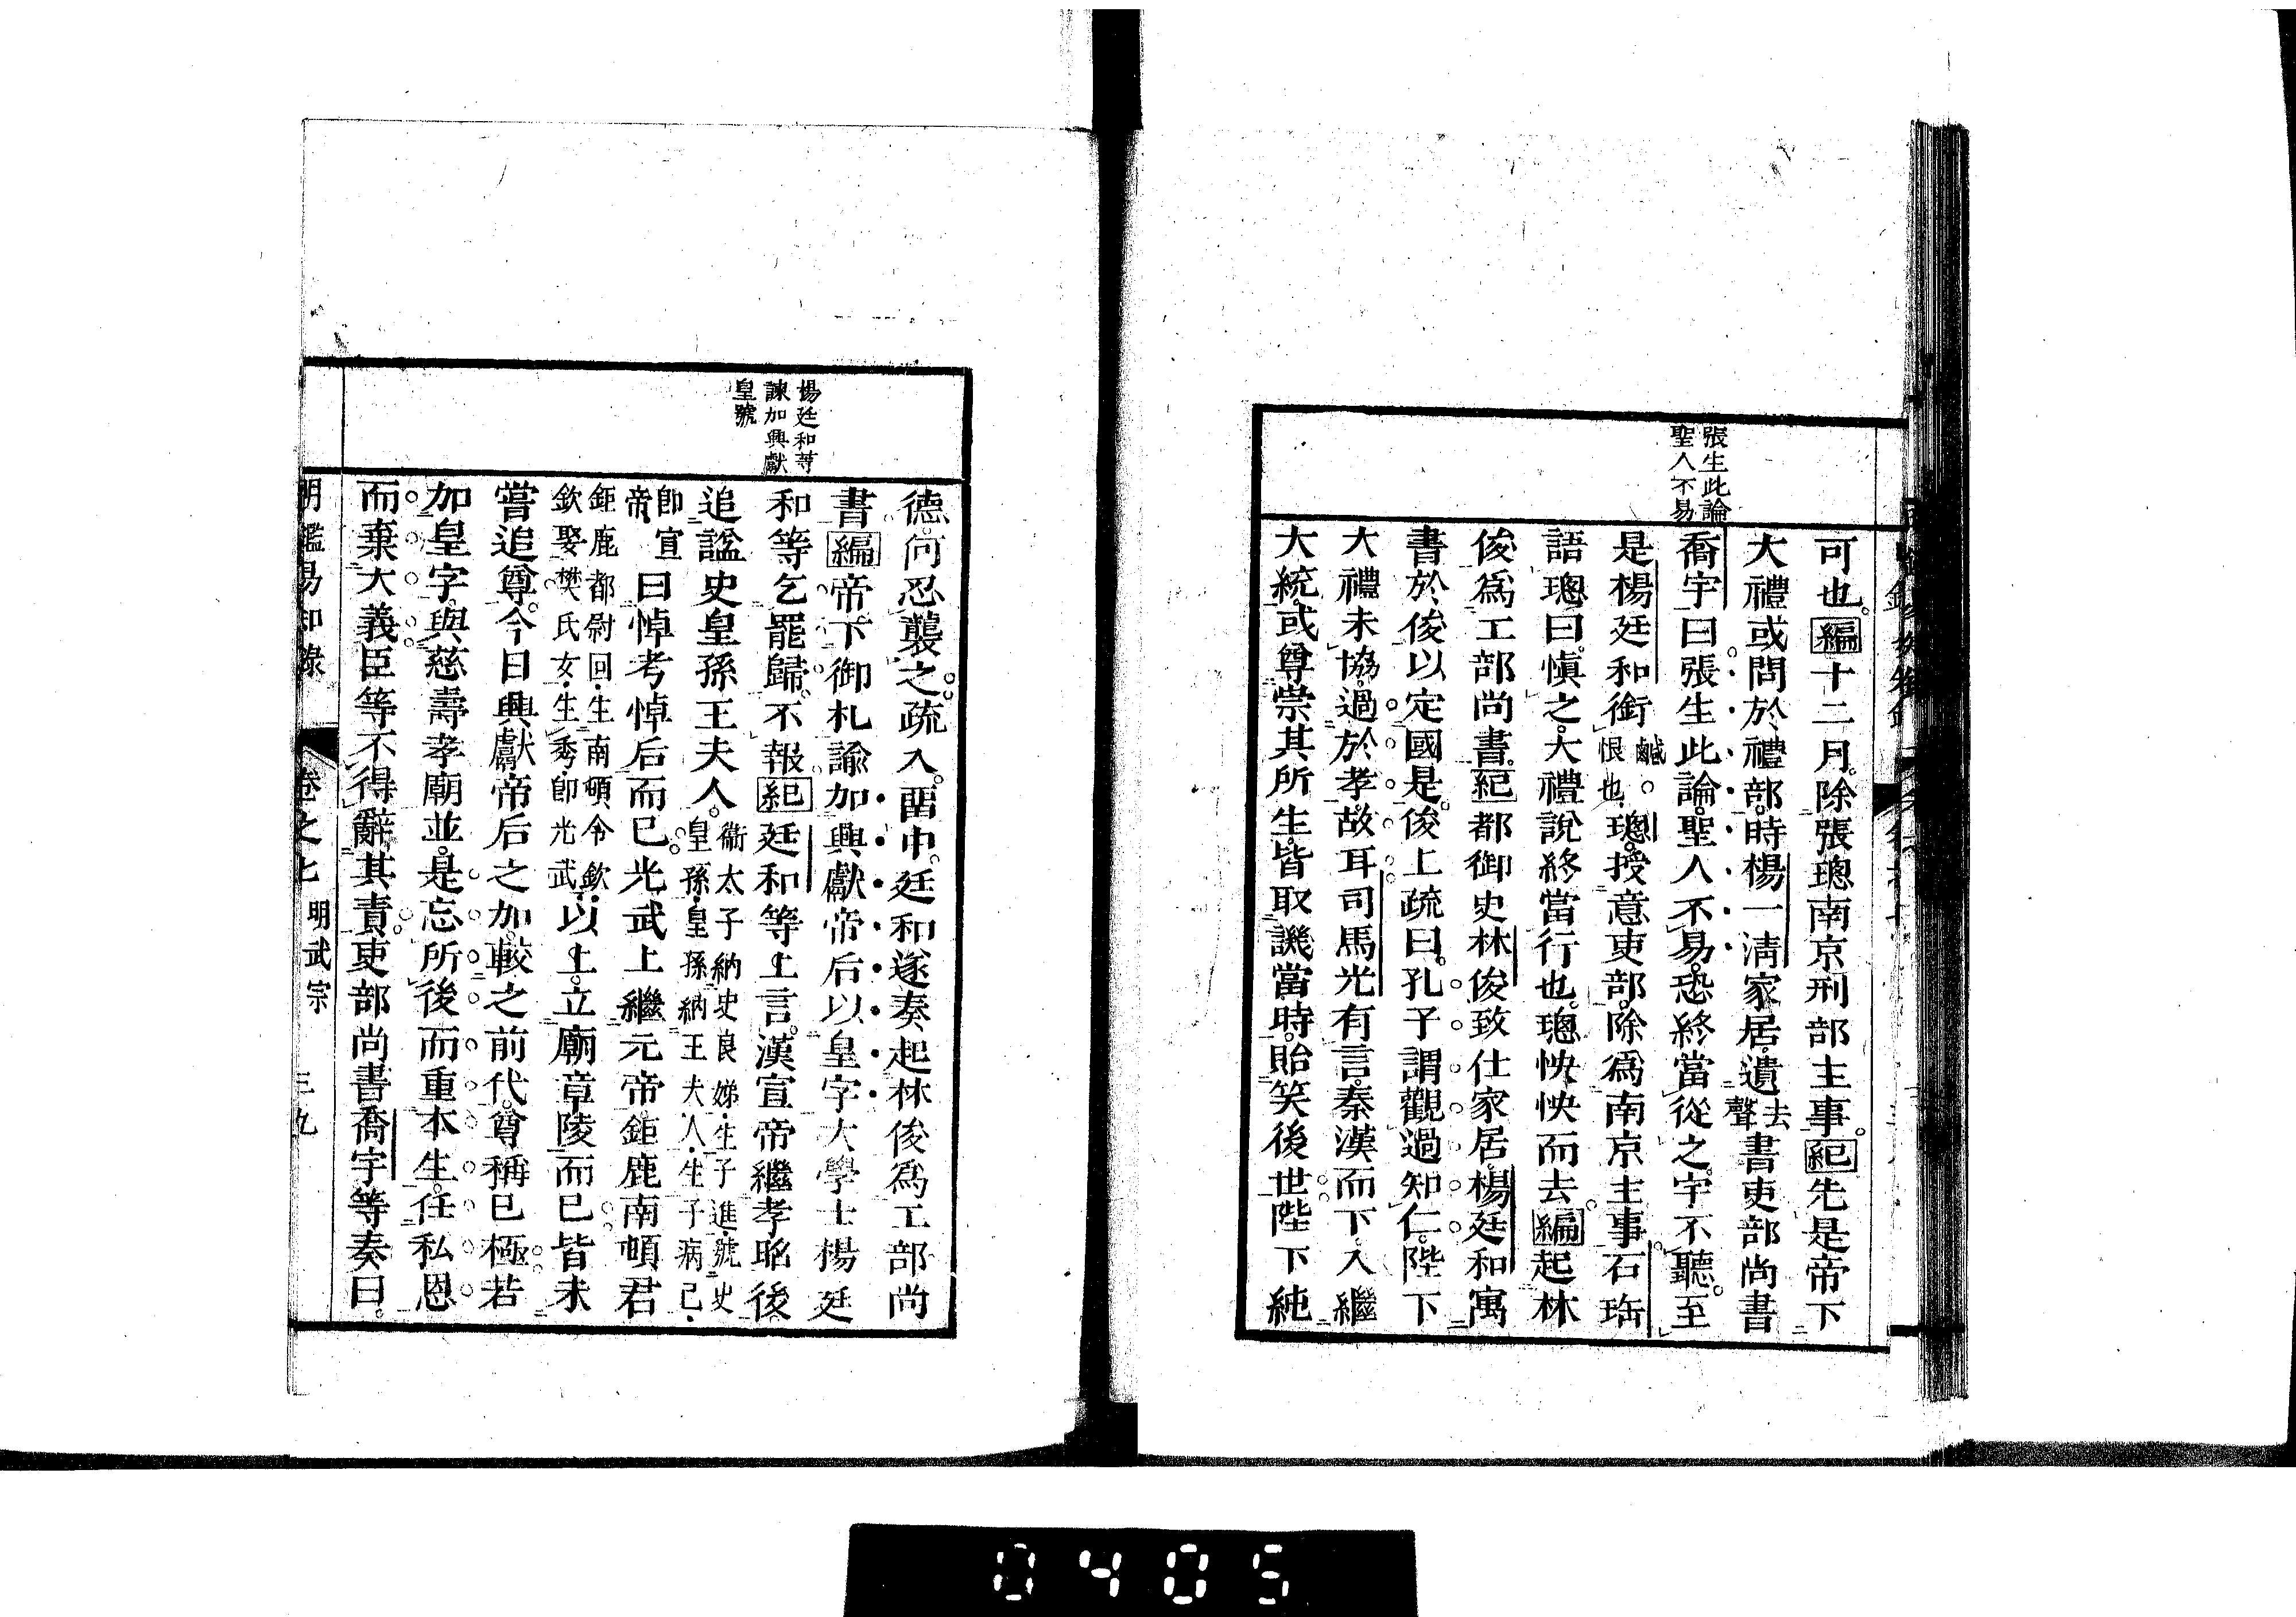 張生此論
聖人不易
可也。編十二月。除張璁南京刑部主事。紀先是帝下
大禮或問於禮部。時楊一清家居。遺去聲書吏部尚書
喬宇曰。張生此論。聖人不易。恐終當從之。宇不聽。至
是楊廷和銜鹹。恨也。璁。授意吏部。除爲南京主事。石珤
語璁曰。慎之。大禮說終當行也。璁怏怏而去。編起林
俊爲工部尚書。紀都御史林俊致仕家居。楊廷和寓
書於俊以定國是。俊上疏曰。孔子謂觀過知仁。陛下
大禮未協。過於孝。故耳。司馬光有言。秦漢而下。入繼
大統。或尊崇其所生。皆取譏當時。貽笑後世。陛下純
楊廷和等
諫加興獻
皇號
德。何忍襲之。疏入。畱中。廷和遂奏起林俊爲工部尚
書。編帝下御札。諭加興獻帝后以皇字。大學士楊廷
和等乞罷歸。不報。紀廷和等上言。漢宣帝繼孝昭後
追諡史皇孫王夫人。衞太子納史良娣。生子進。號史皇孫。皇孫納王夫人。生子病已。
卽宣帝。曰悼考悼后而已。光武上繼元帝。鉅鹿南頓君
鉅鹿都尉回。生南頓令欽。欽娶樊氏女。生秀。卽光武。以上。立廟章陵而已。皆未
嘗追尊。今日興獻帝后之加。較之前代。尊稱已極。若
加皇字。與慈壽孝廟並。是忘所後而重本生。任私恩
而棄大義。臣等不得辭其責。吏部尚書喬宇等奏曰。
明鑑易知錄 卷之七 明武宗 三九
0405